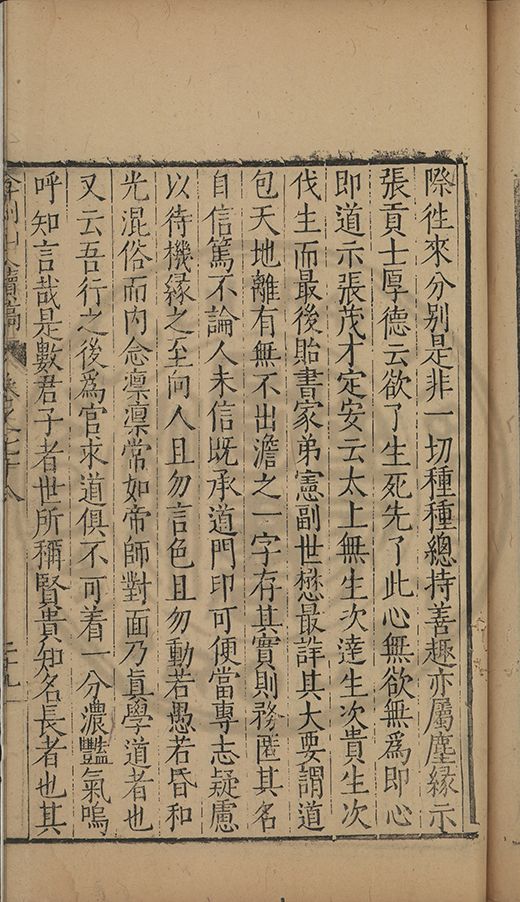 際徃來分别是非一切種種總持善趣亦屬塵緣示
張貢士厚德云欲了生死先了此心無欲無爲即心
即道示張茂才定安云太上無生次達生次貴生次
伐生而最後貽書家弟憲副世懋最詳其大要謂道
包天地離有無不出澹之一字存其實則務匿其名
自信篤不論人未信既承道門印可便當專志疑慮
以待機緣之至向人且勿言色且勿動若愚若昏和
光混俗而内念凛凛常如帝師對面乃眞學道者也
又云吾行之後爲官求道俱不可着一分濃豔氣嗚
呼知言哉是數君子者世所稱賢貴知名長者也其
續稿 卷之七十八 二十九